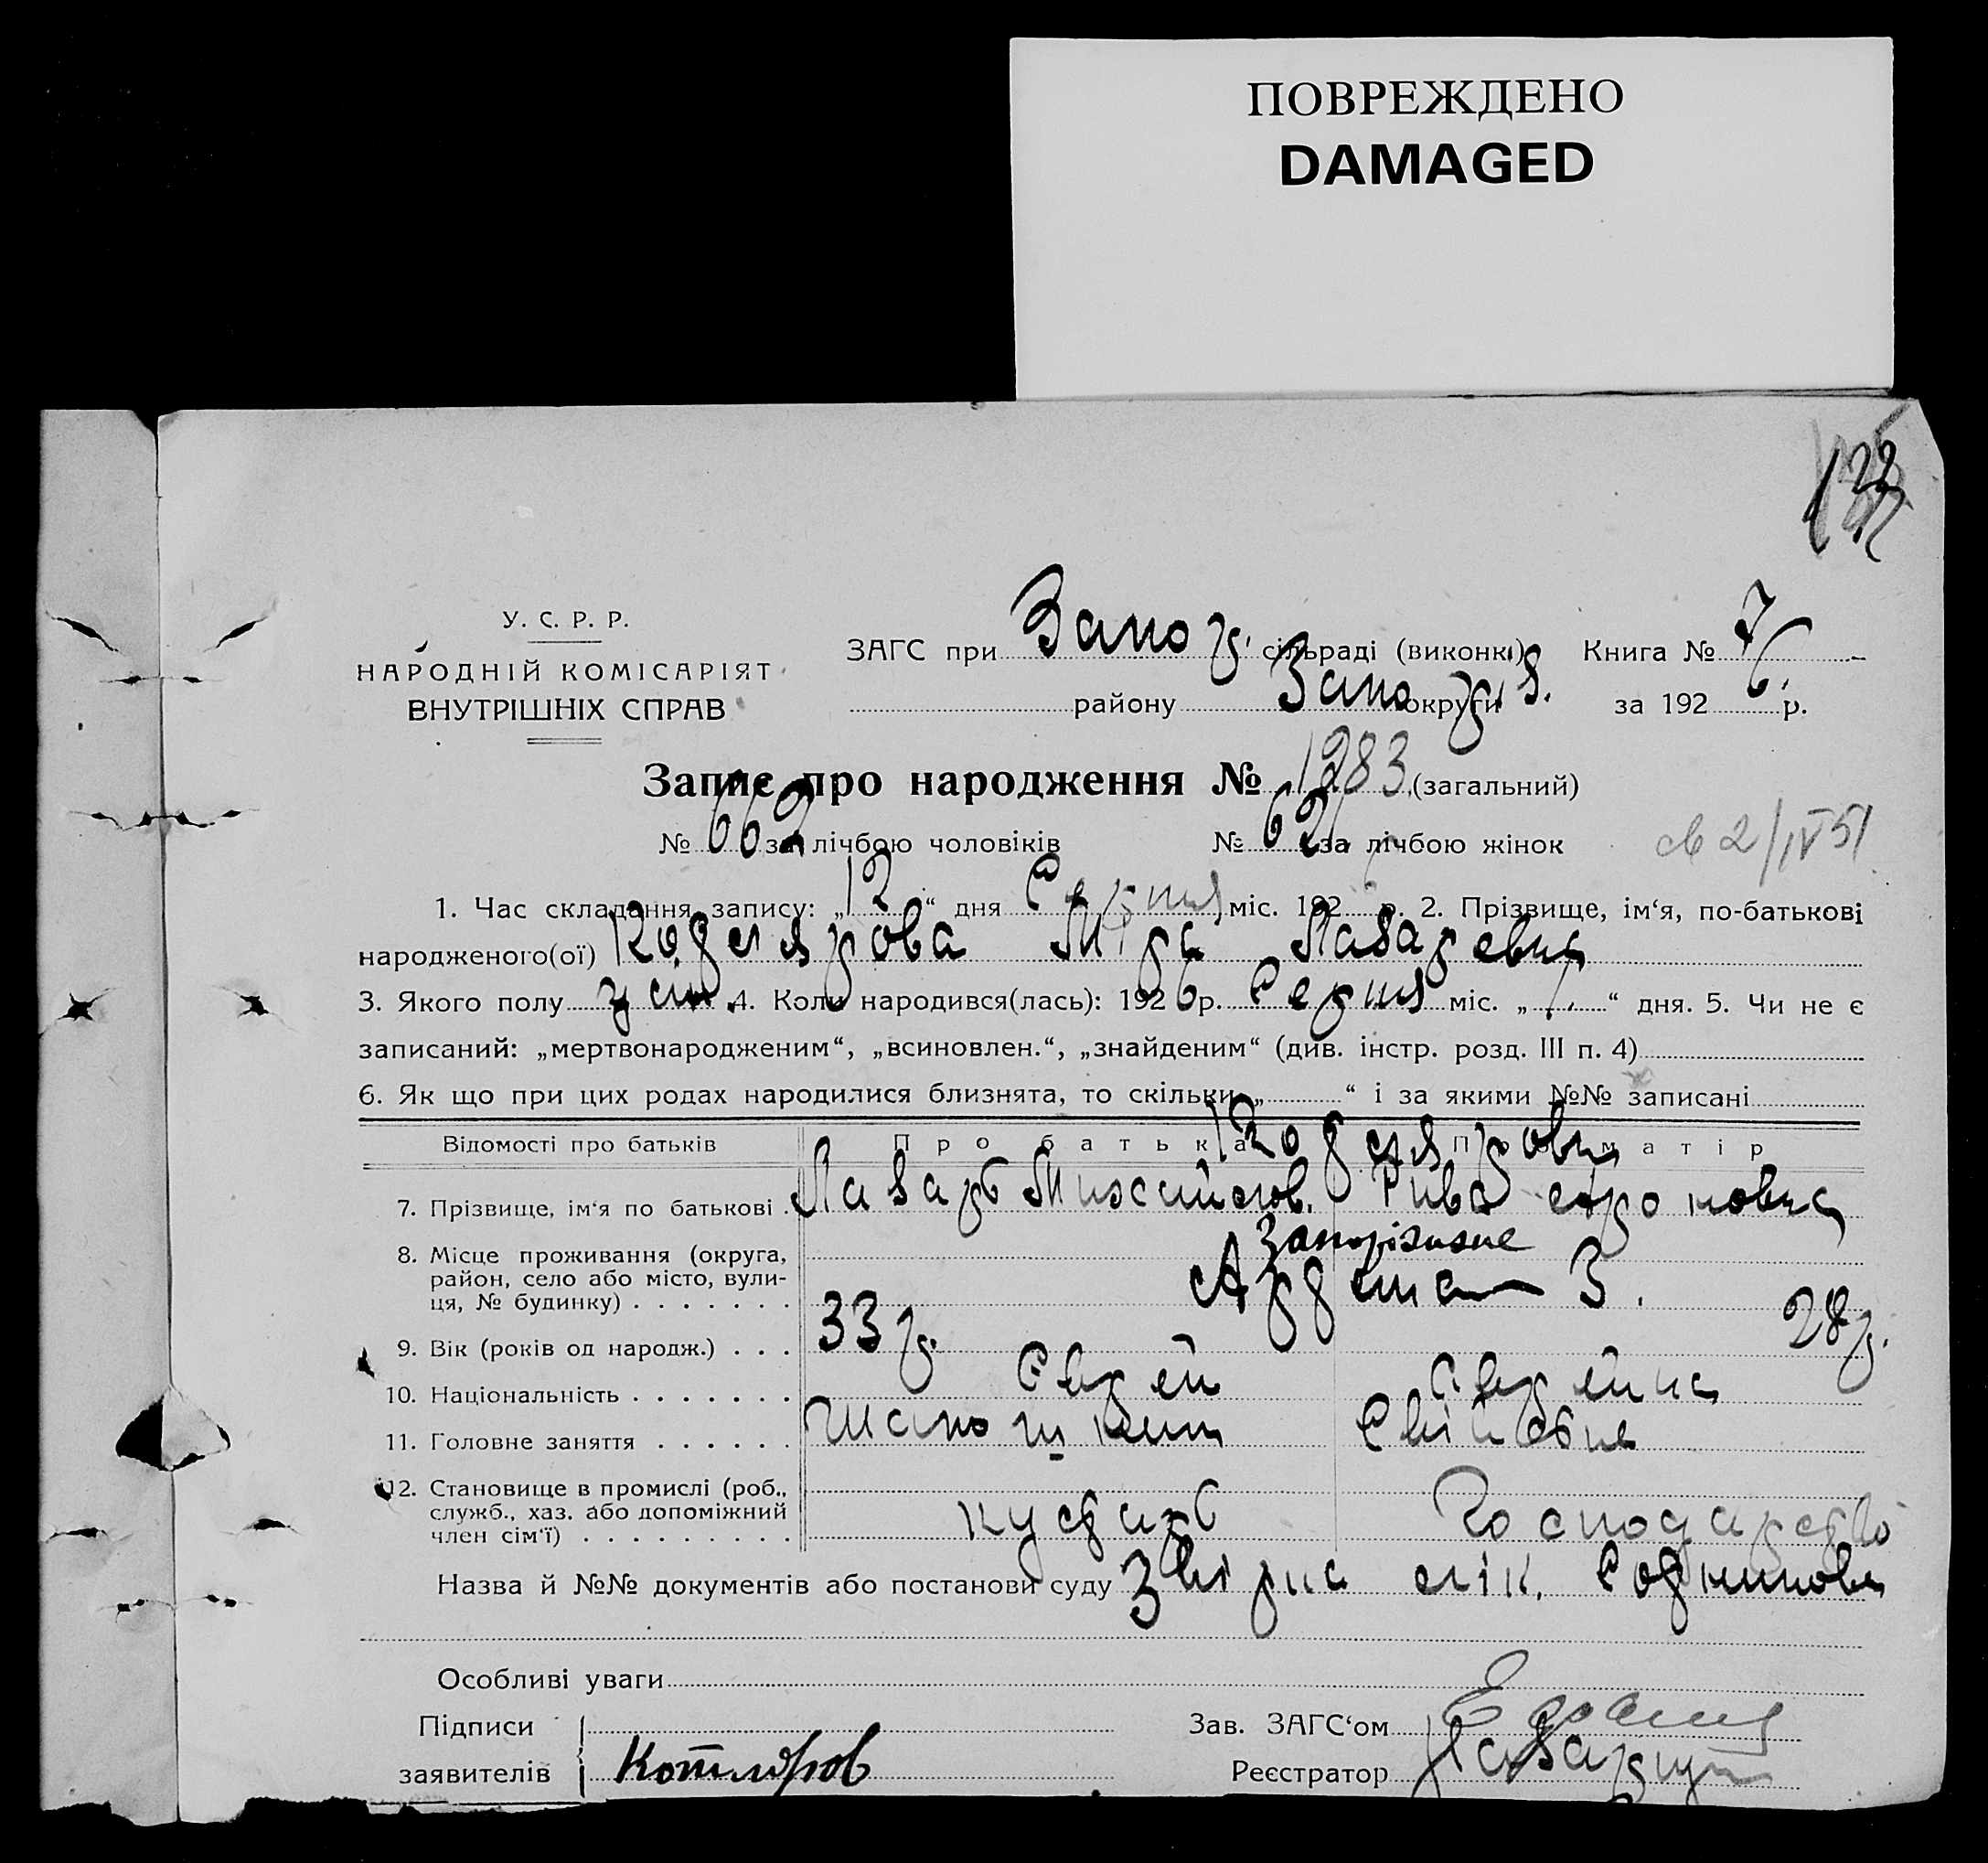 ПОВРЕЖДЕНО
DAMAGED
122
У. С. Р. Р.
НАРОДНІЙ КОМІСАРІЯТ
ВНУТРІШНІХ СПРАВ
ЗАГС при Запор. сільраді (виконк.) Книга № 7
району Запоріз. округи за 192 6 р.
Запис про народження № 1283 (загальний)
№ 662 за лічбою чоловіків № 621 за лічбою жінок
св 2/IV 51
1. Час складання запису: „12“ дня Серпня міс. 192 р. 2. Прізвище, ім‘я, по-батькові
народженого(ої) Котлярова Міра Лазаревна
3. Якого полу жін. 4. Коли народився(лась): 1926 р. Серпня міс. „7“ дня. 5. Чи не є
записаний: „мертвонародженим“, „всиновлен.“, „знайденим“ (див. інстр. розд. III п. 4)
6. Як що при цих родах народилися близнята, то скільки „ “ і за якими №№ записані
Відомості про батьків Про батька Про матір
Котлярови
7. Прізвище, ім‘я по батькові . Лазарь Михайлов. Рива
8. Місце проживання (округа,
район, село або місто, вули-
ця, № будинку) . . . . . . . Запоріжжє
3.
9. Вік (років од народж.) . . . 33 р. 28 р.
10. Національність . . . . . . . Єврей Єврейка
11. Головне заняття . . . . . . Шапошник Хатнє
12. Становище в промислі (роб.,
служб., хаз. або допоміжний
член сім‘ї) . . . . . . . . . кустарь Господарство
Назва й №№ документів або постанови суду лік.
Особливі уваги
Підписи
заявителів Котляров
Зав. ЗАГС‘ом
Реєстратор